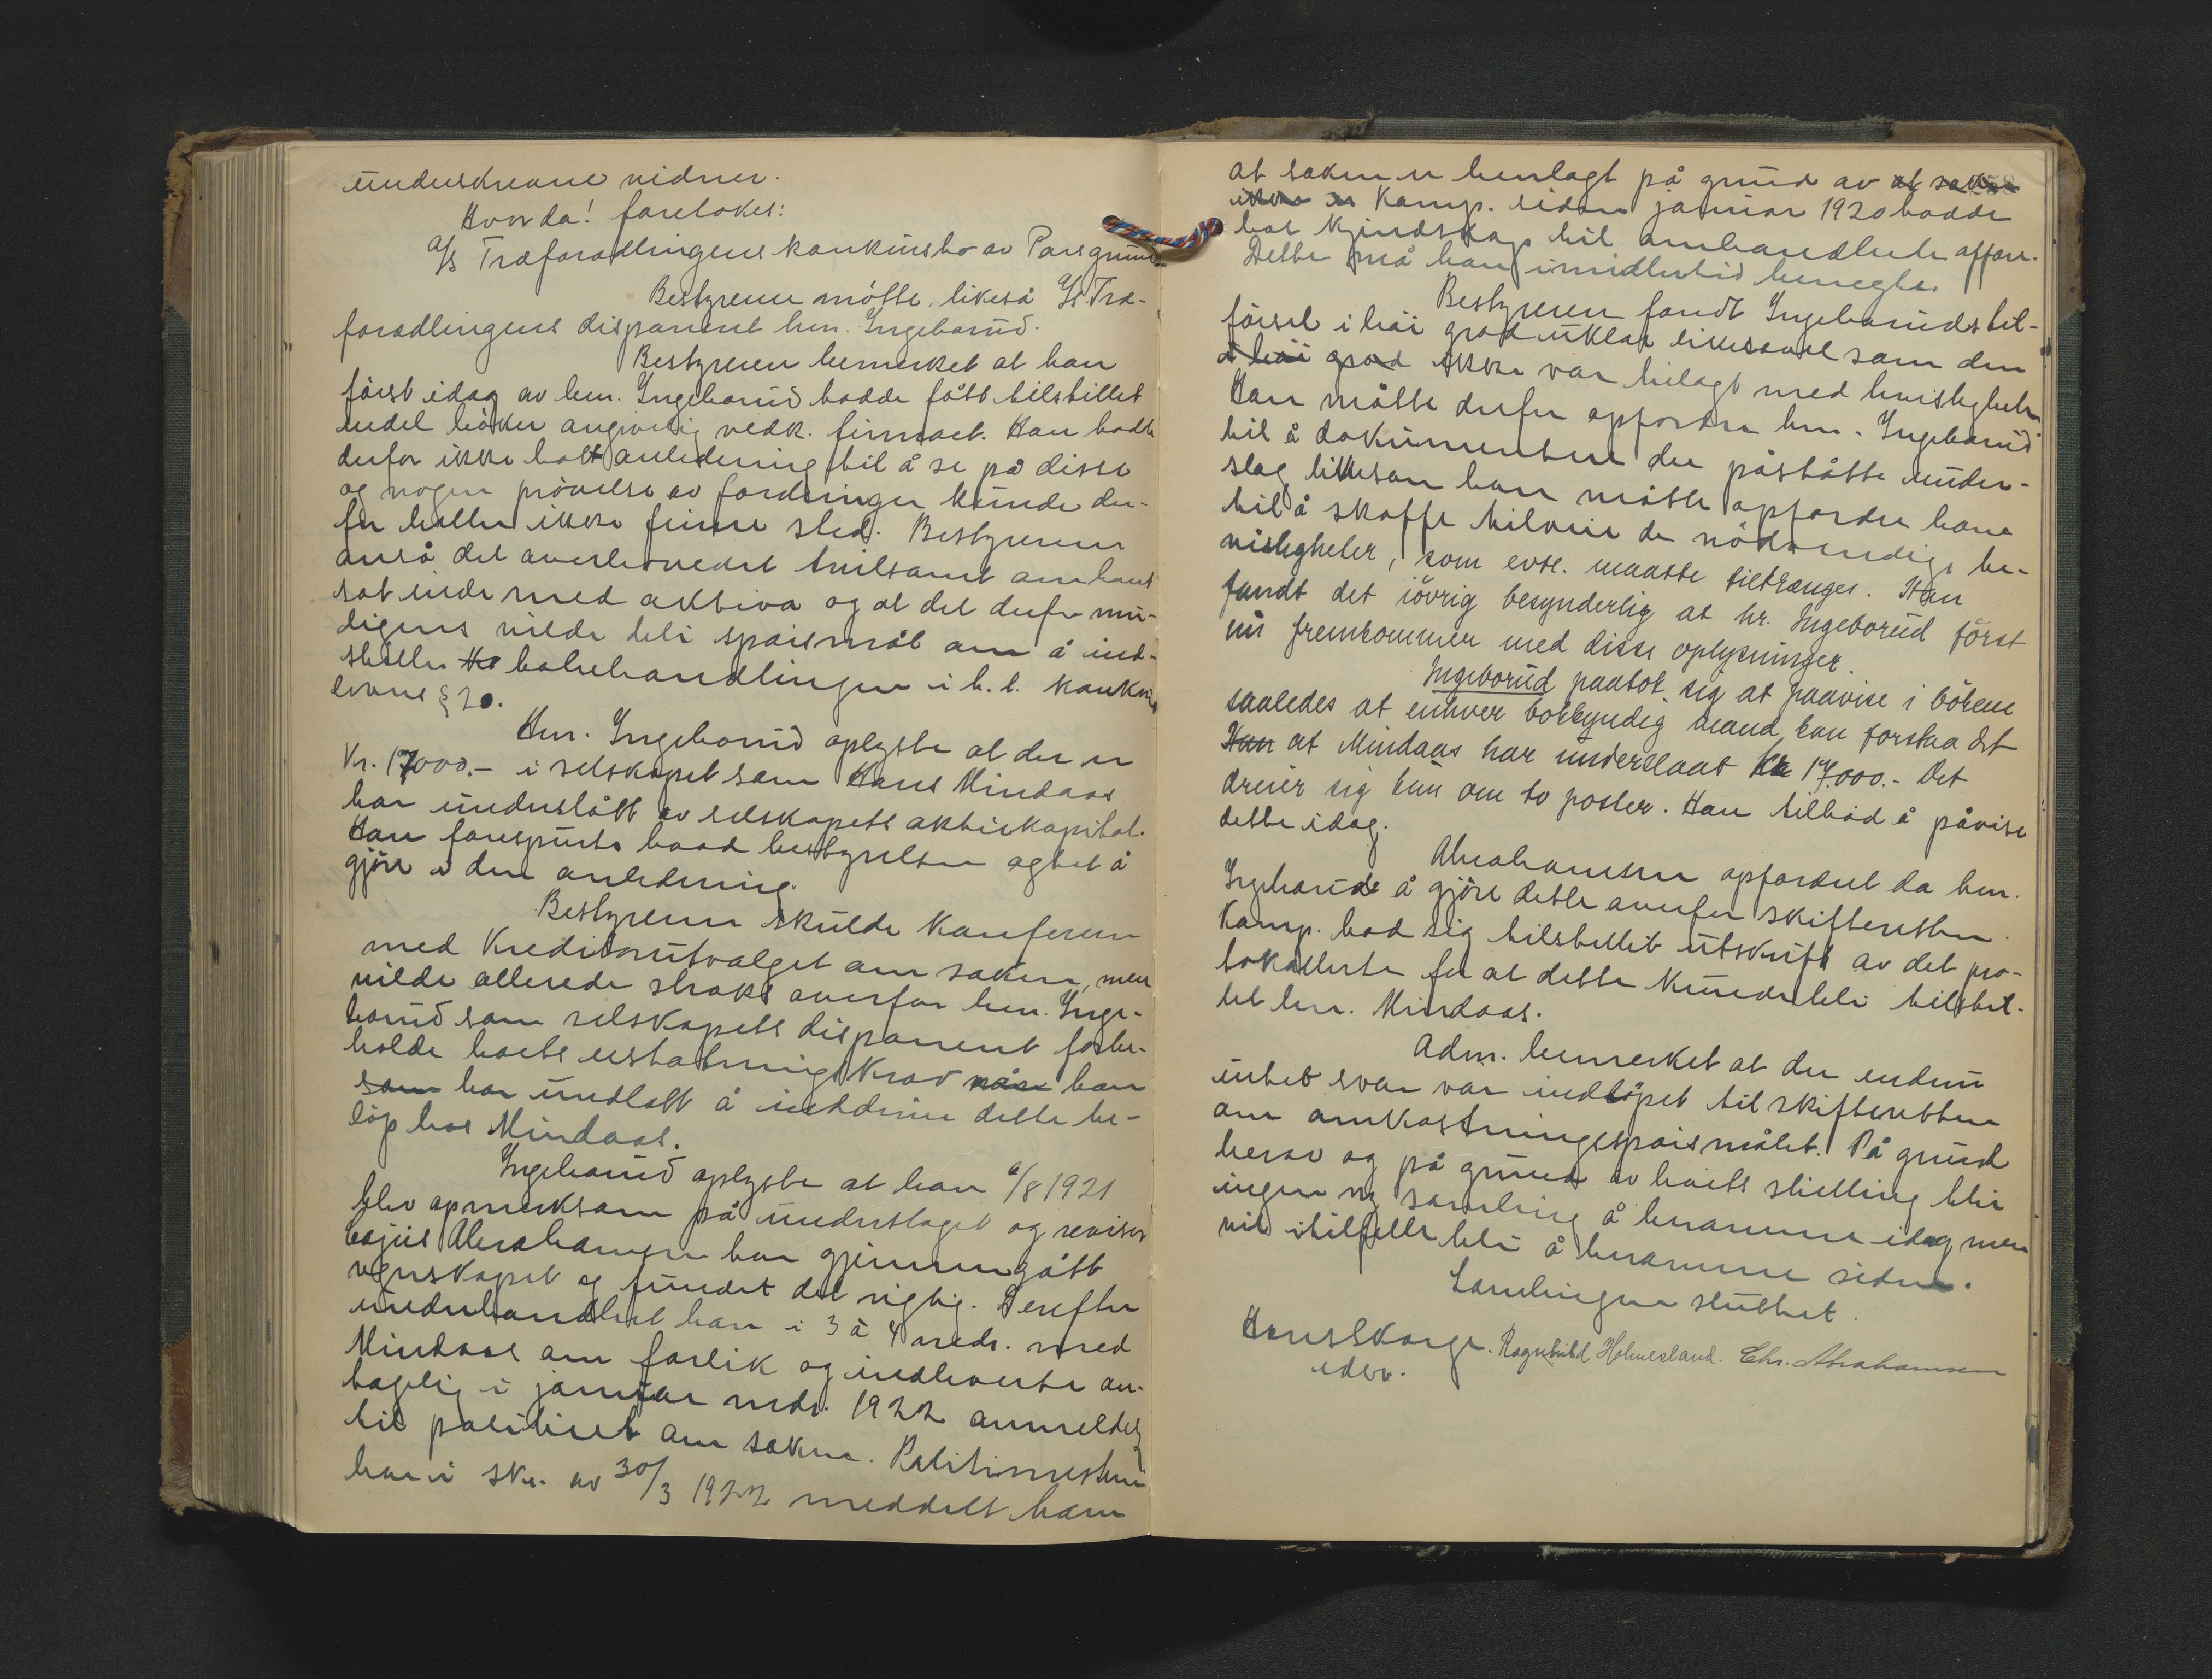 underskrevne vidner.
Hvor da! foretokes:
A/s Træforædlingens konkursbo av Porsgrund.
Bestyreren møtte, likeså A/s Træ-
forædlingens disponent herr Ingeborud.
Bestyreren bemerket at han
först idag av herr Ingeborud hadde fått tilstillet
endel böker angivelig vedk. firmaet. Han hadde
derfor ikke hatt anledning til å se på disse
og nogen prövelse av fordringer kunde der-
for heller ikke finne sted. Bestyreren
anså det overhovedet tvilsomt om boet
sat inde med aktiva og at det derfor mu-
ligens vilde bli spörsmål om å ind-
stille bobehandlingen i h.t. konkurs
lovens § 20.
Herr Ingeborud oplyste at der er
Kr. 17000.- i selskapet som Hans Mindaas
har underslått av selskapets aktiekapital.
Han forespurte hvad bestyrelsen agtet å
gjöre i den anledning.
Bestyreren skulde konferere
med Kreditorutvalget om saken, men
vilde allerede straks overfor herr Inge-
borud som selskapets disponent forbe-
holde boets erstatningskrav når han
som har undlatt å inddrive dette be-
löp hos Mindaas.
Ingeborud oplyste at han 6/8 1921
blev opmerksom på underslaget og revisor
Cajus Abrahamsen har gjennemgått
regnskapet og fundet det rigtig. Derefter
underhandlet han i 3 à 4 mdr. med
Mindaas om forlik og indleverte an-
tagelig i januar mdr. 1922 anmeldelse
til politiet om saken. Politimesteren
har i skr. av 30/3 1922 meddelt ham
at saken er henlagt på grund av at saken
ikke er Komp. siden januar 1920 hadde
hat kjendskap til omhandlede affære.
Dette må han imidlertid benegte.
Bestyreren fandt Ingeboruds til-
försel i höi grad uklar likesovel som den
i höi grad ikke var bilagt med bevisligheter
Han måtte derfor opfordre herr Ingeborud
til å dokumentere det påståtte under-
slag likesom han måtte opfordre ham
til å skaffe tilveie de nödvendige be-
visligheter, som evt. maatte tiltrænges. Han
fandt det iövrig besynderlig at hr. Ingeborud först
nu fremkommer med disse oplysninger.
Ingeborud paatok sig at paavise i bökene
saaledes at enhver bokkyndig mand kan forstaa det
Han at Mindaas har underslaat Kr 17.000.- Det
dreier sig kun om to poster. Han tilbød å påvise
dette idag.
Abrahamsen opfordret da herr
Ingeborud å gjöre dette overfor skifteretten.
Komp. bad sig tilstillet utskrift av det pro-
tokollerte for at dette kunde bli tilstil-
let herr Mindaas.
Adm. bemerket at der endnu
intet svar var indlöpet til skifteretten
om omkostningsspörsmålet. På grund
herav og på grund av boets stilling blir
ingen ny samling å beramme idag men
vil i tilfelle bli å beramme siden.
Samlingen sluttet.
Hans Skauge. Ragnhild Holmesland. Chr. Abrahamsen
edsv.